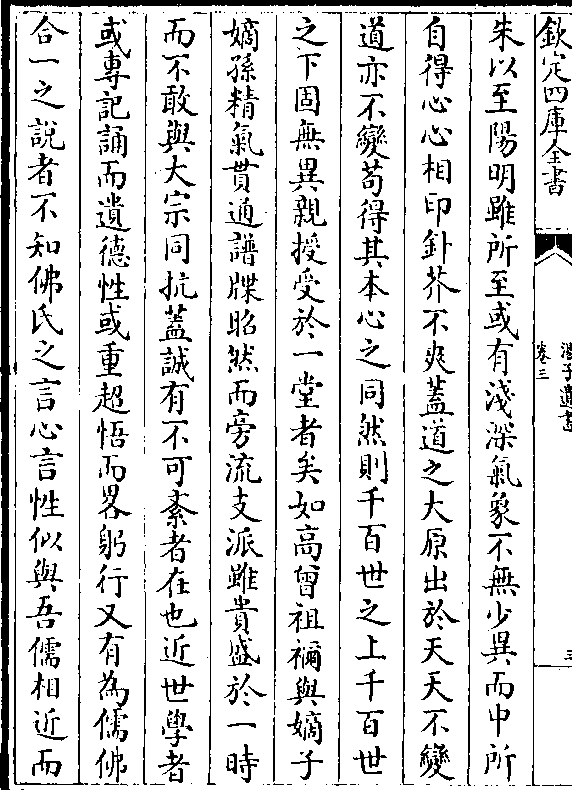 欽定四庫全書
卷三
朱以至陽明雖所至或有淺深氣象不無少異而中所
自得心心相印針芥不爽蓋道之大原出於天天不變
道亦不變苟得其本心之同然則千百世之上千百世
之下固無異親授受於一堂者矣如高曾祖禰與嫡子
嫡孫精氣貫通譜牒昭然而旁流支派雖貴盛於一時
而不敢與大宗同抗蓋誠有不可紊者在也近世學者
或專記誦而遺德性或重超悟而畧躬行又有為儒佛
合一之說者不知佛氏之言心言性似與吾儒相近而